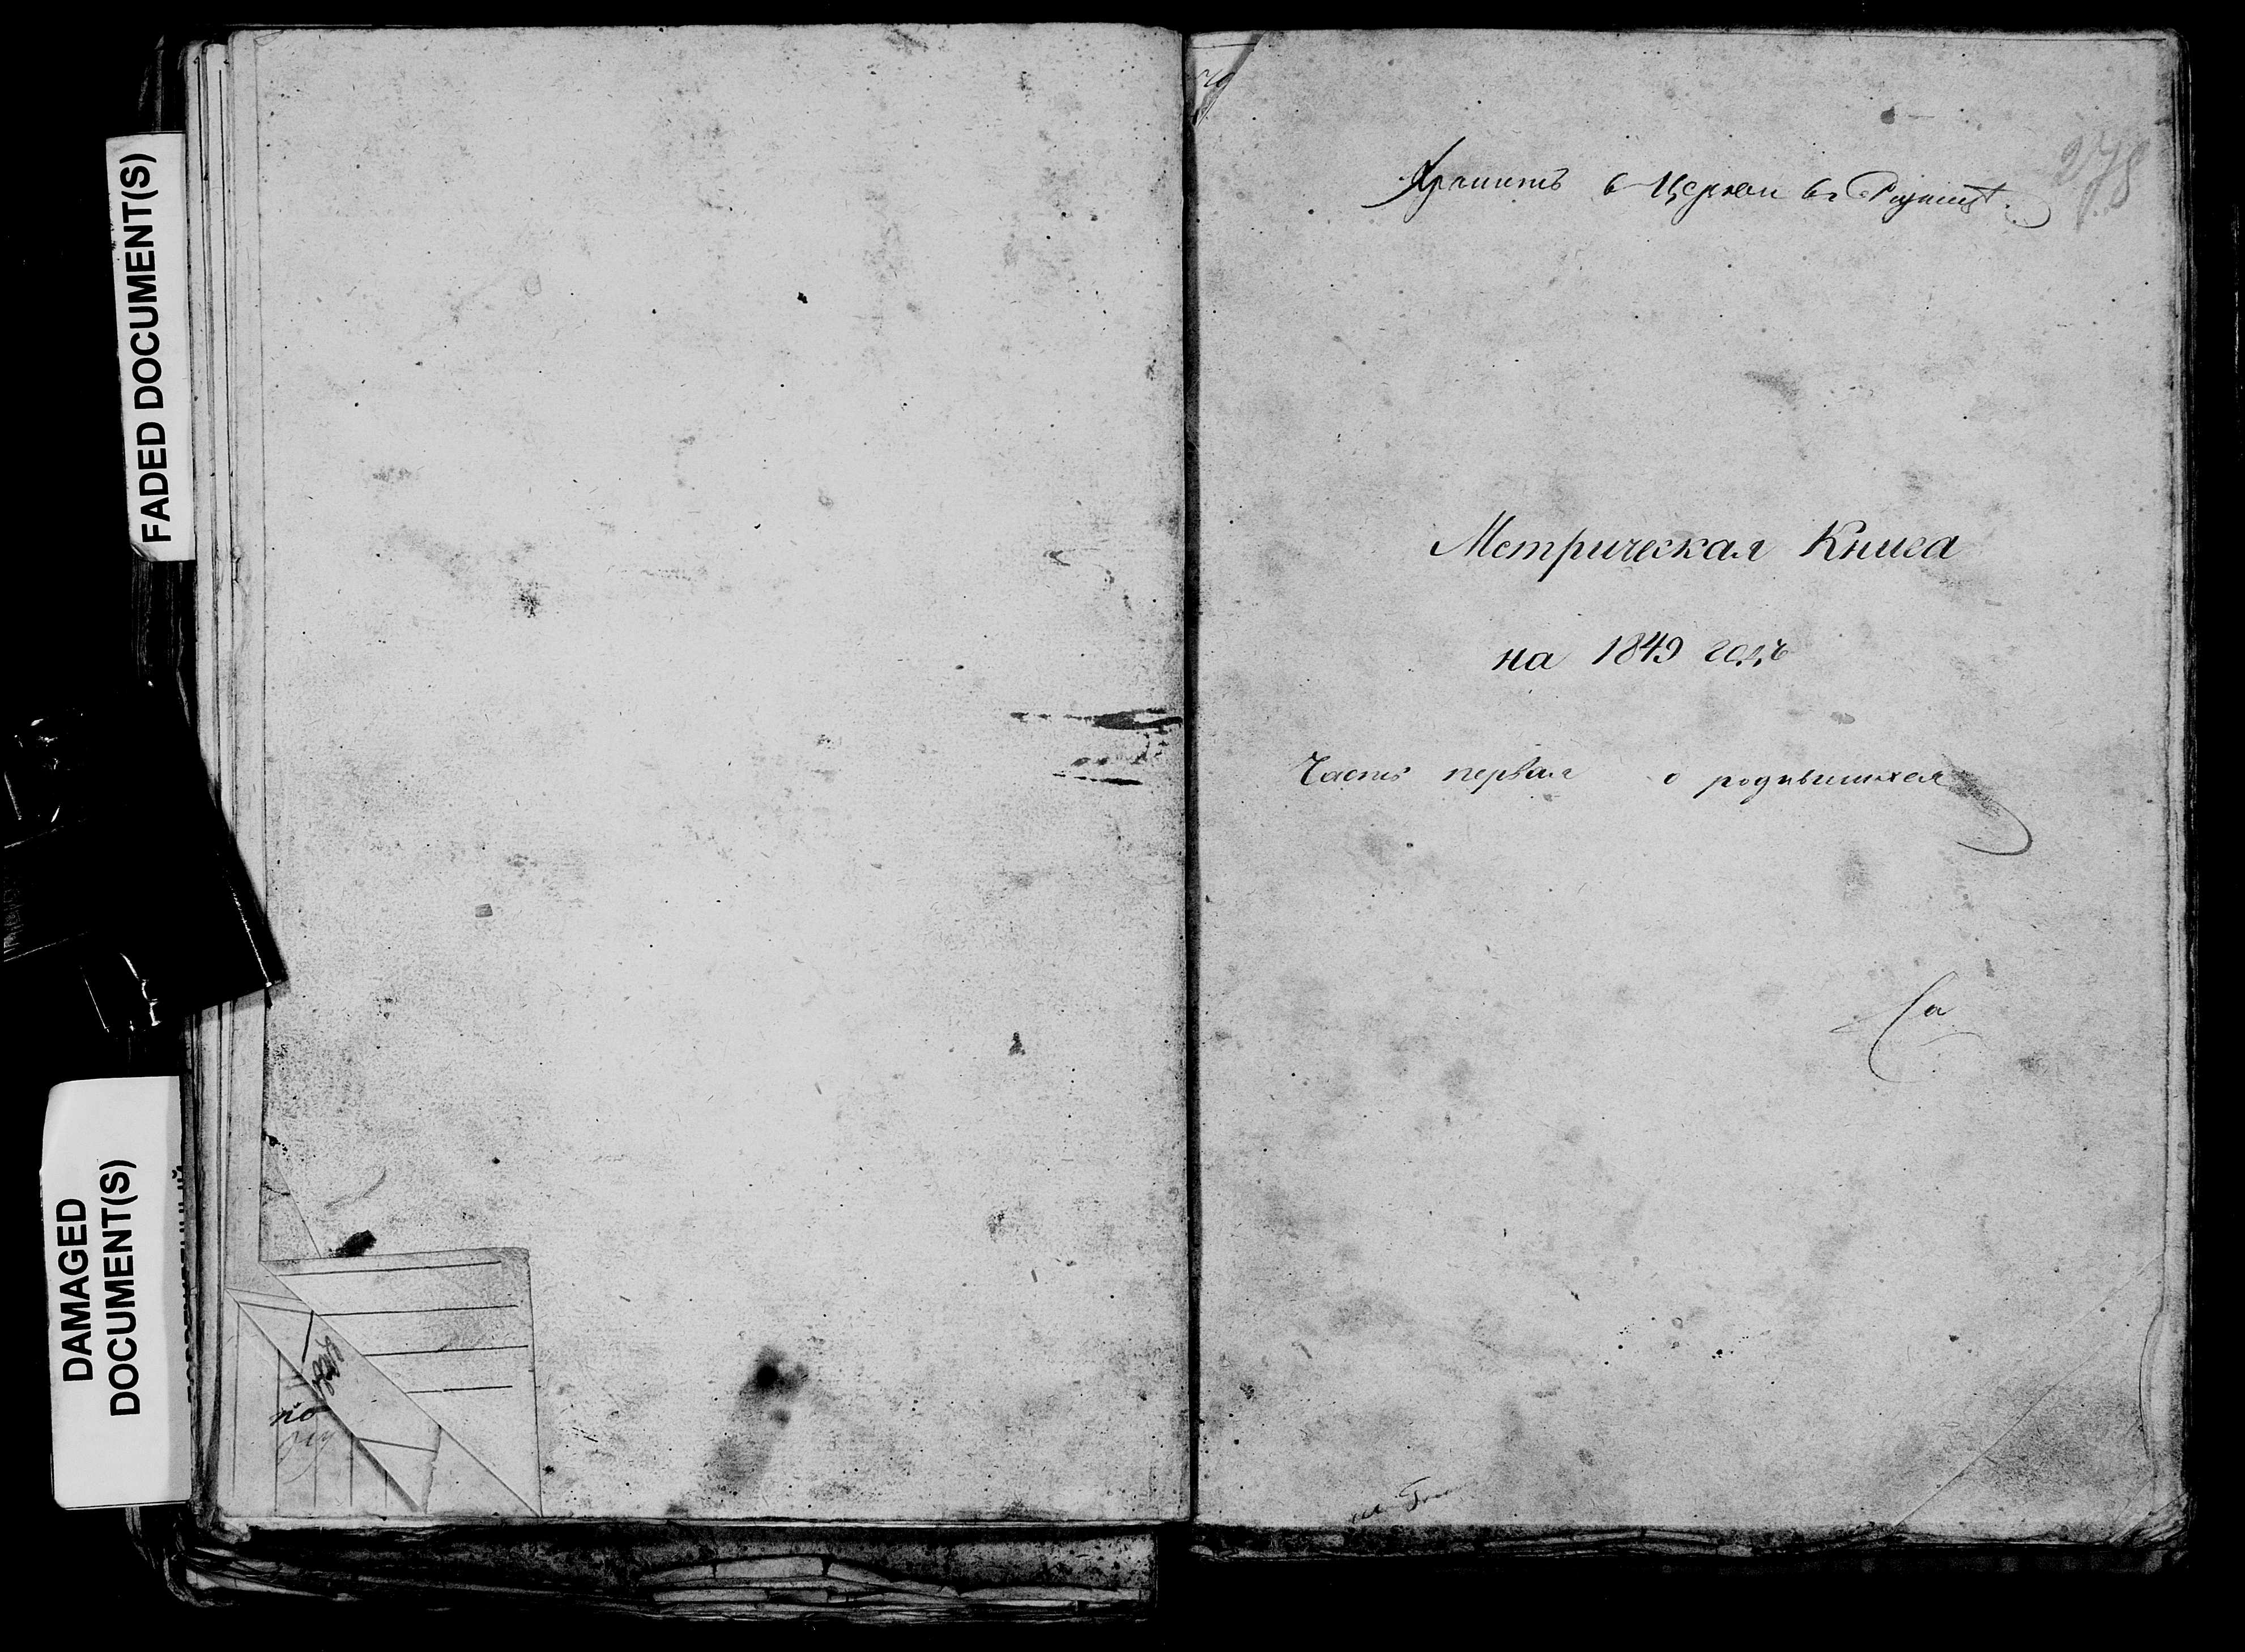 FADED DOCUMENT(S)
DAMAGED
DOCUMENT(S)
по
278
Хранить в Церкви въ
Метрическая Книга
на 1849 годъ
Часть первая о родившихся